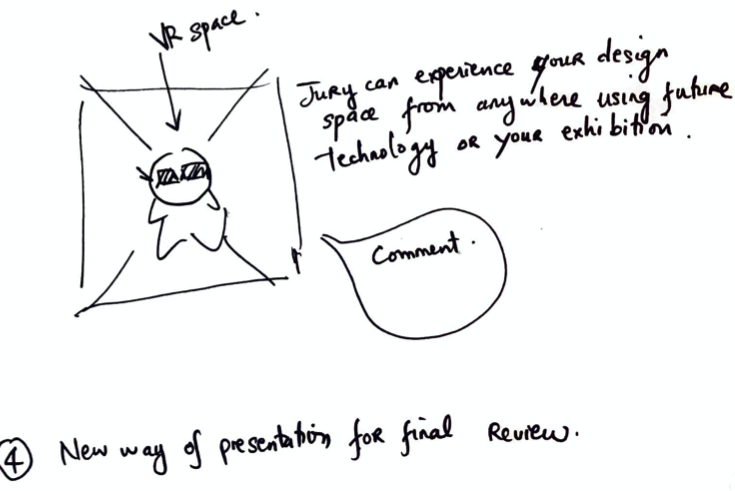 VR space.
Jury can experience your design
space from anywhere using future
technology or your exhibition.
Comment.
④ New way of presentation for final Review.